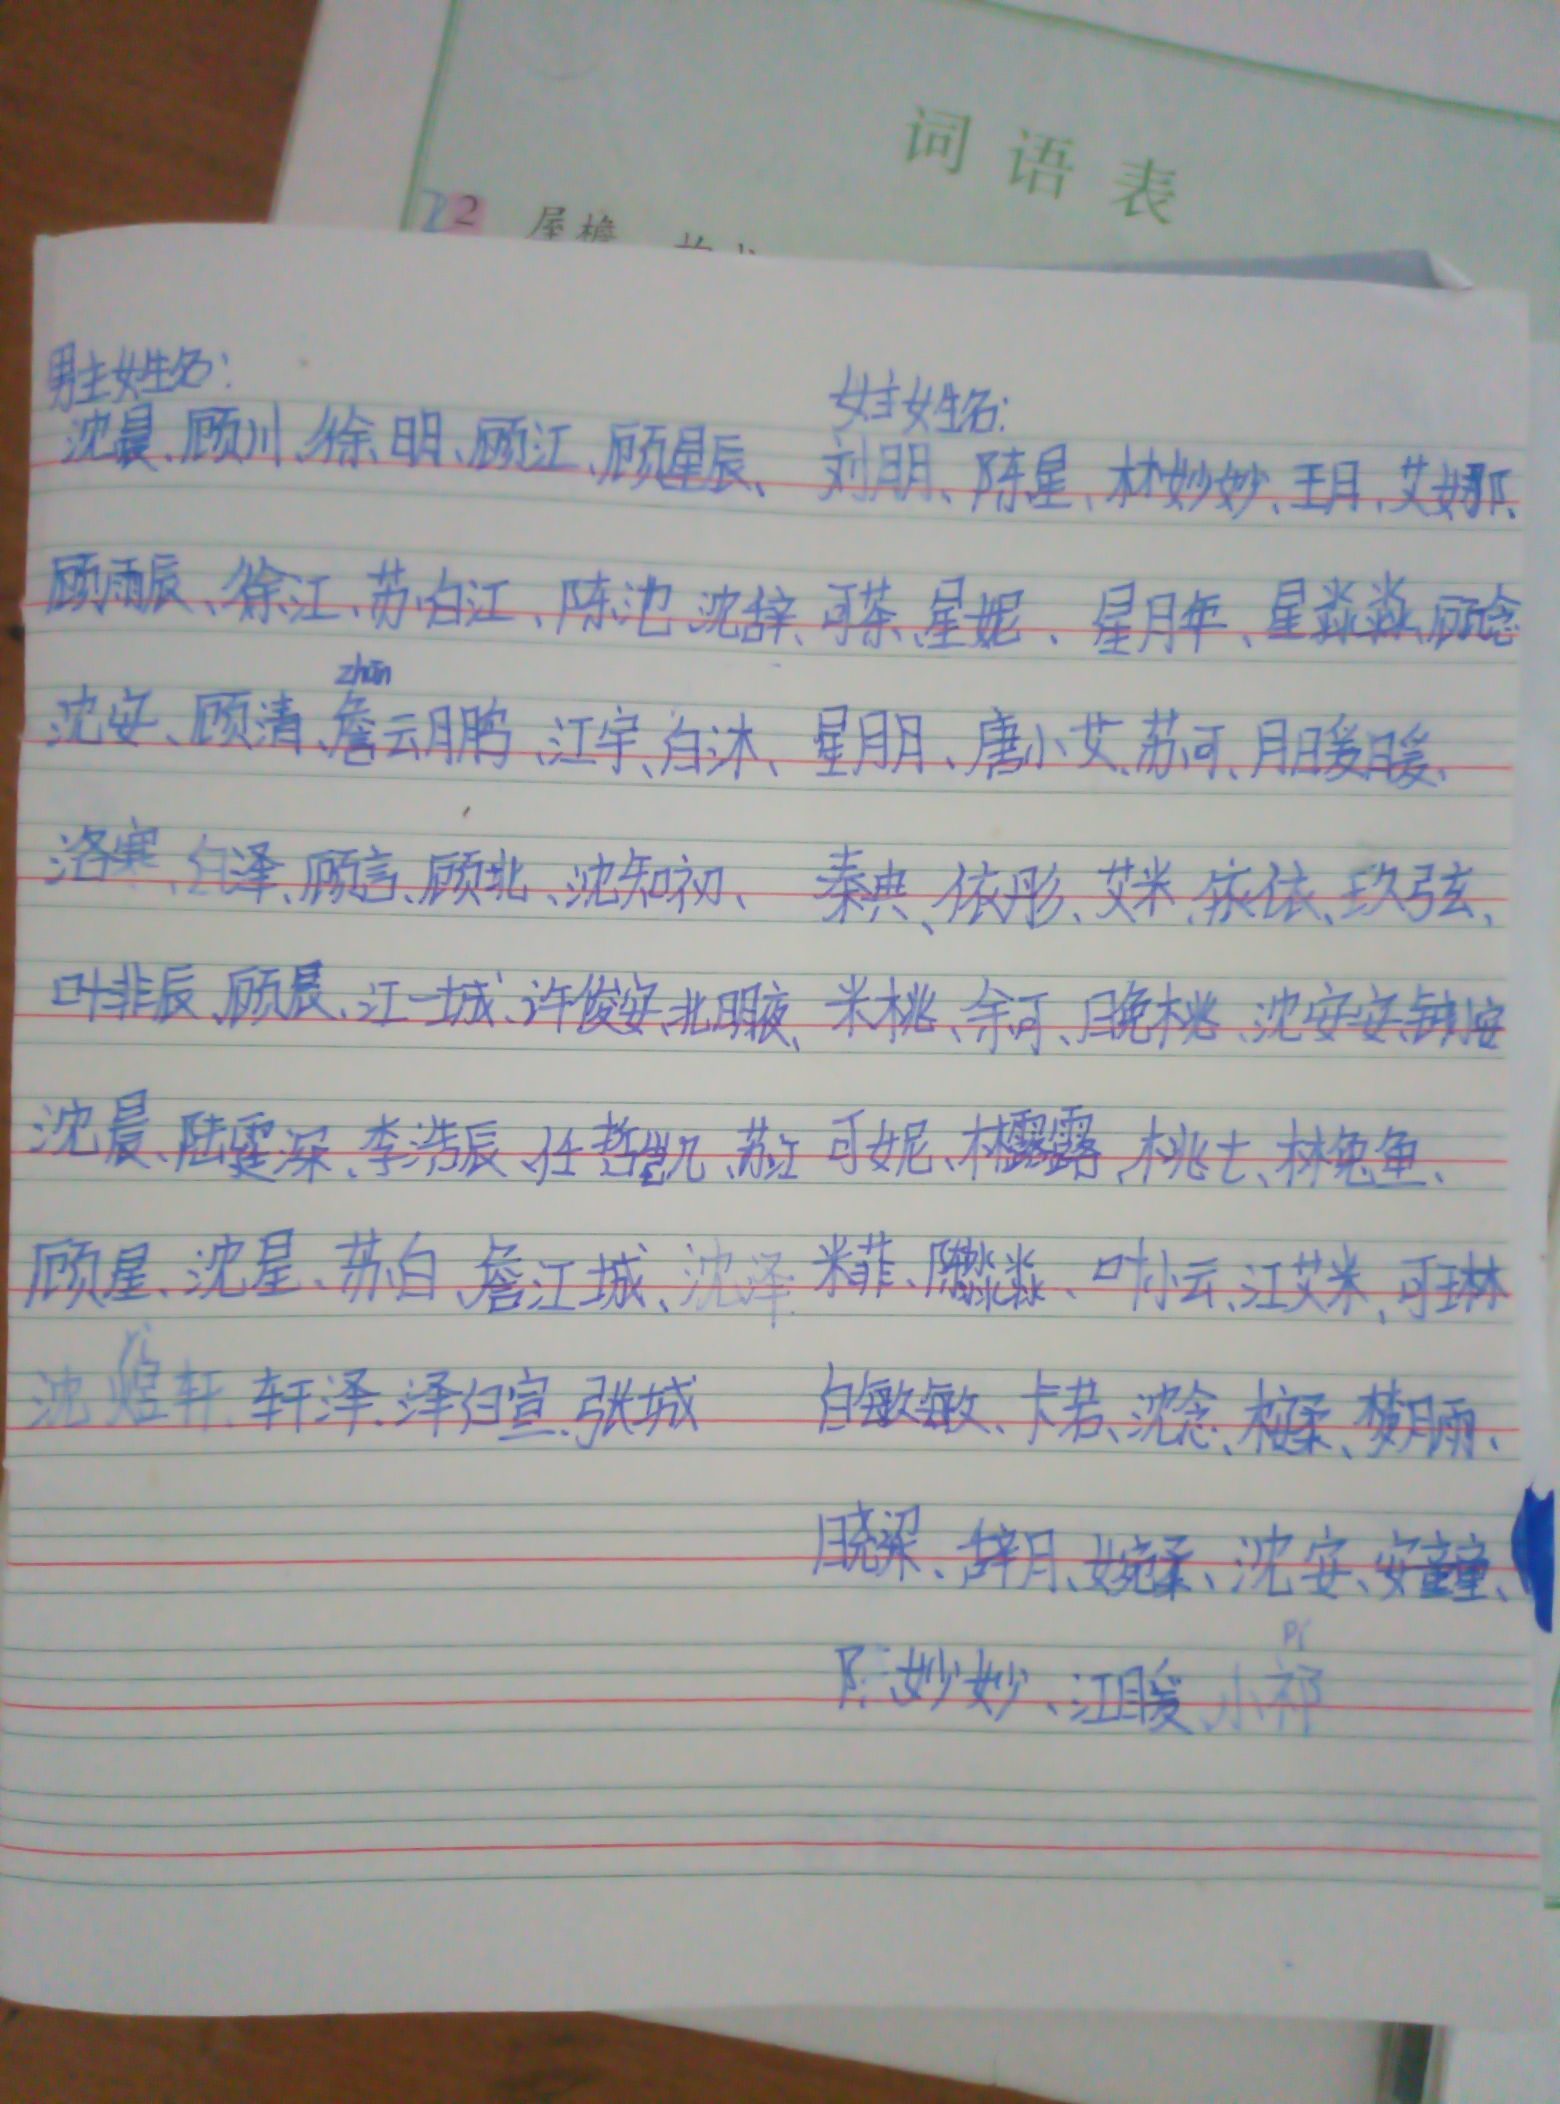 词语表
2 屋檐
男主姓名:
沈晨、顾川、徐明、顾江、顾星辰、
顾雨辰、徐江、苏伯江、陈沈、沈辞、
zhān
沈安、顾清、詹云鹏、江宇、白沐、
洛寒、白泽、顾言、顾北、沈知初、
叶非辰、顾晨、江一城、许俊安、北明夜、
沈晨、陆霆深、李浩辰、任哲凯、苏江
顾星、沈星、苏白、詹江城、沈泽
沈煜轩、轩泽、泽宣、张城
女主姓名:
刘朋、陈星、林妙妙、王月、艾娜、
可茶、星妮、星月年、星淼淼、顾念
星月月、唐小艾、苏可、月暖暖、
秦典、依彤、艾米、依依、玖弦、
米桃、余可、晚桃、沈安安、安
可妮、林露露、桃七、林兔鱼、
米菲、陈淼淼、叶小云、江艾米、可琳
白敏敏、卡若、沈念、柔、梦月雨、
晓梁、辞月、婉柔、沈安、安童童、
妙妙、江暖、小祁